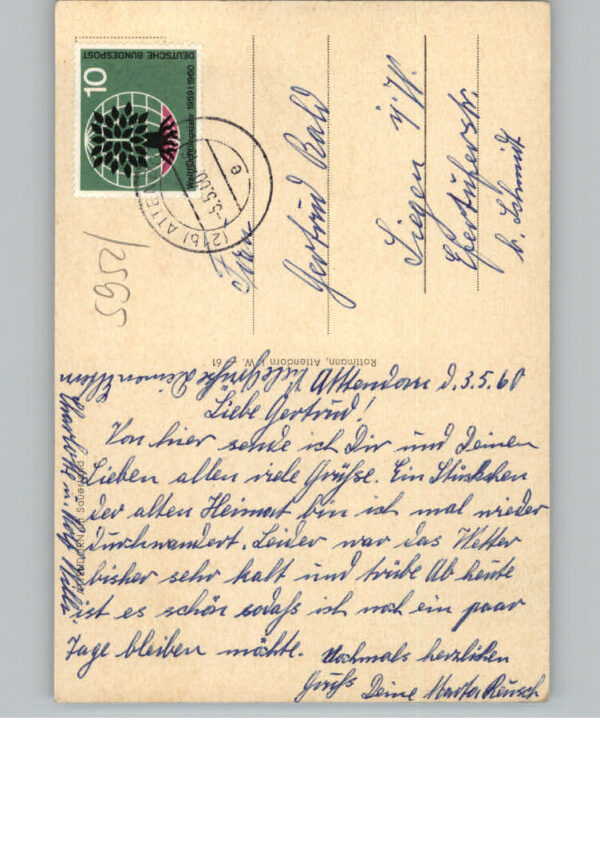 DEUTSCHE BUNDESPOST
10
Weltflüchtlingsjahr 1959/1960
(21b) ATTE
-3.5.60
e
Frau
Gertrud Bald
Siegen i./W.
Eiserfelderstr.
b. Schmidt
2565
Rottmann, Attendorn i. W. 61
Attendorn d. 3.5.60
Liebe Gertrud!
Von hier sende ich Dir und Deinen
Lieben allen viele Grüße. Ein Stückchen
der alten Heimat bin ich mal wieder
durchwandert. Leider war das Wetter
bisher sehr kalt und trübe Ab heute
ist es schön sodaß ich noch ein paar
Tage bleiben möchte. Nochmals herzlichen
Gruß Deine Marta Reusch
viele Grüße